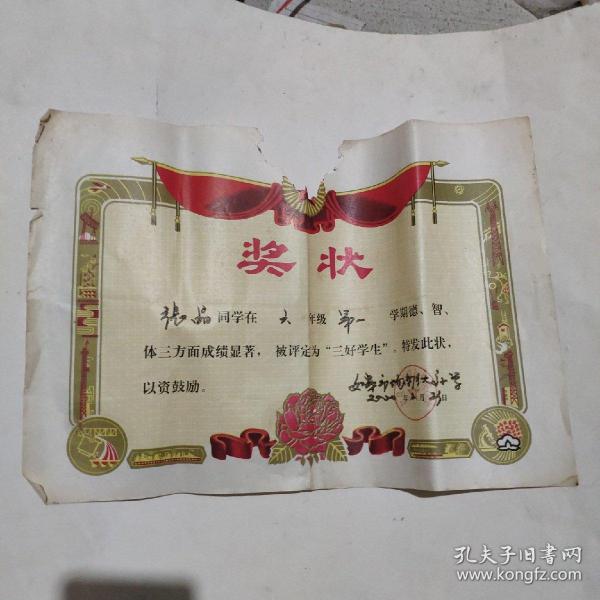 奖状
张晶同学在六年级第一学期德、智、
体三方面成绩显著，被评定为“三好学生”。特发此状，
以资鼓励。
小学
年 月 日
孔夫子旧书网
www.kongfz.com